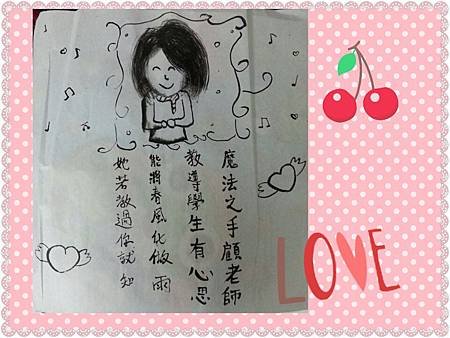 魔法之手顧老師
教導學生有心思
能將春風化做雨
她若教過你就知
LOVE